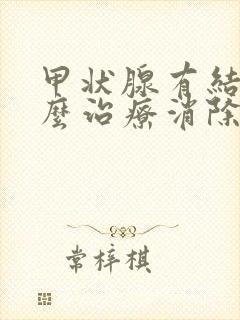 甲状腺有結
麼治療消除
常梓棋